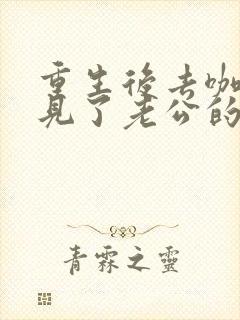 重生後考
見了老公的
青霖之靈